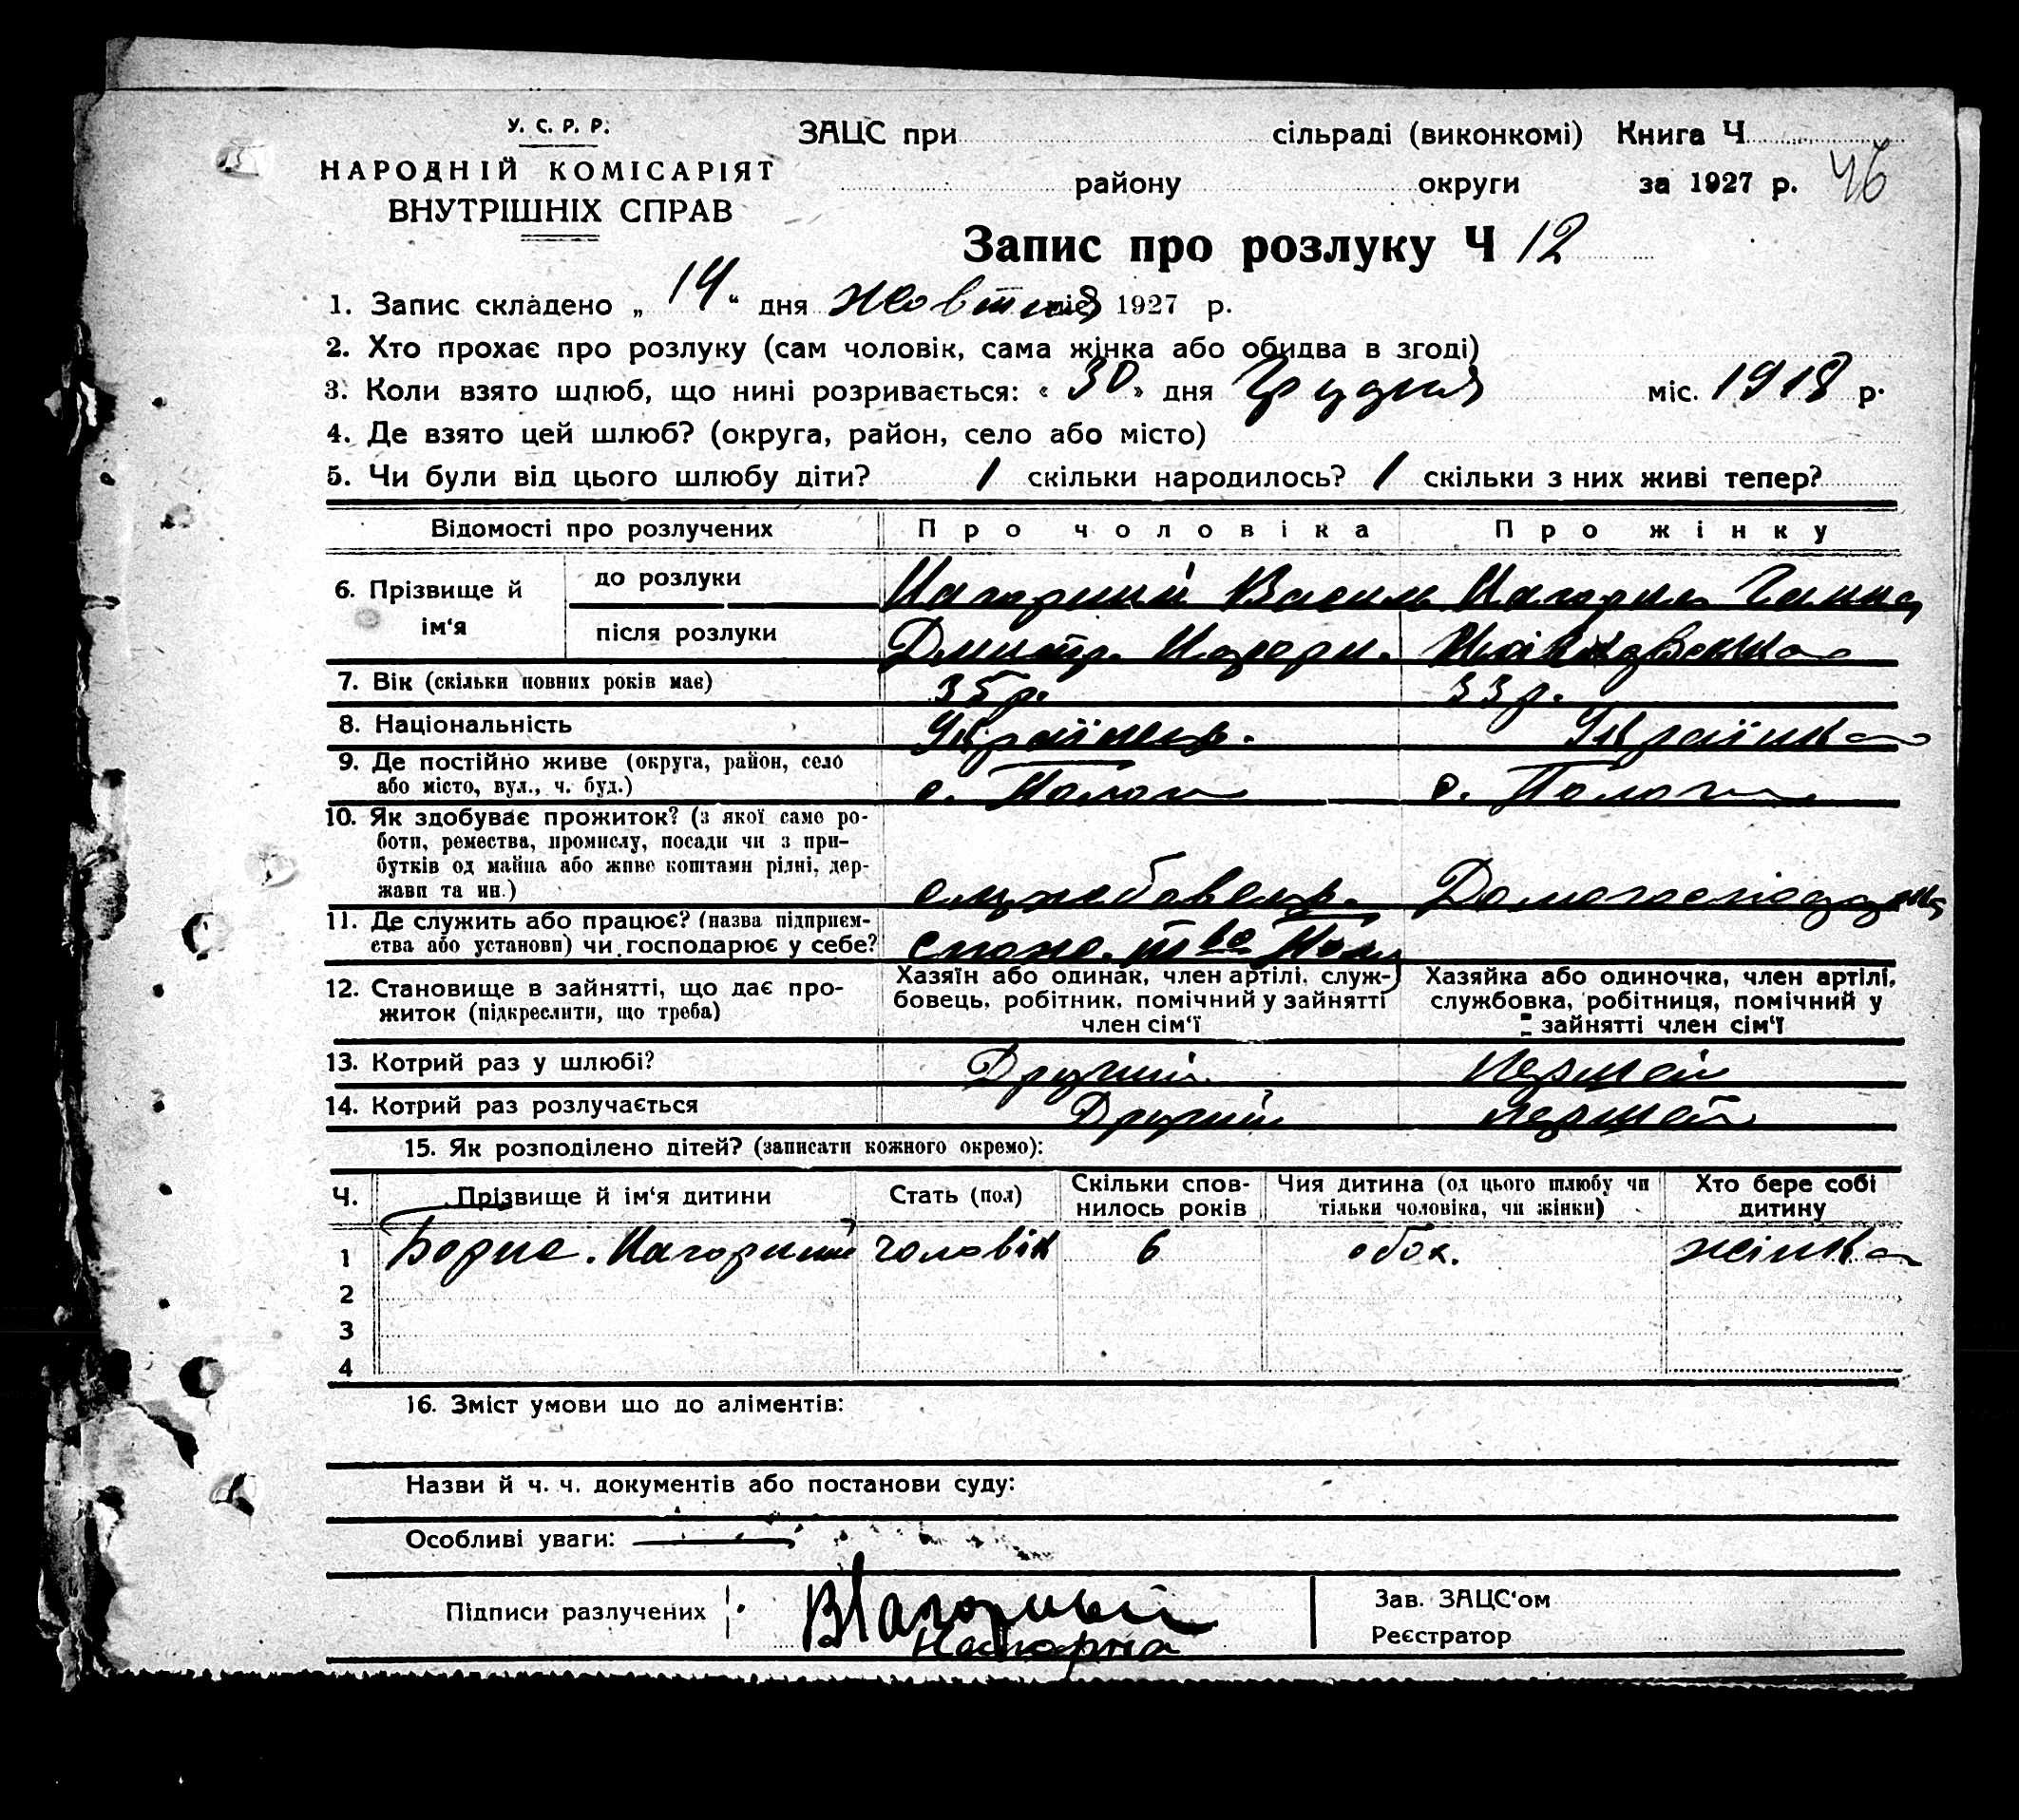 У. С. Р. Р.
НАРОДНІЙ КОМІСАРІЯТ
ВНУТРІШНІХ СПРАВ
ЗАЦС при сільраді (виконкомі) Книга Ч.
району округи за 1927 р. 46
Запис про розлуку Ч 12
1. Запис складено „ 14 “ дня жовтня міс. 1927 р.
2. Хто прохає про розлуку (сам чоловік, сама жінка або обидва в згоді)
3. Коли взято шлюб, що нині розривається: « 30 » дня Грудня міс. 1918 р.
4. Де взято цей шлюб? (округа, район, село або місто)
5. Чи були від цього шлюбу діти? 1 скільки народилось? 1 скільки з них живі тепер?
Відомості про розлучених Про чоловіка Про жінку
6. Прізвище й ім‘я
до розлуки Нагорний Василь Нагорна Ганна
після розлуки Дмитр. Нагорн.
7. Вік (скільки повних років має) 35 р. 33 р.
8. Національність Українець. Українка
9. Де постійно живе (округа, район, село
або місто, вул., ч. буд.) с. Пологи с. Пологи
10. Як здобуває прожиток? (з якої само ро-
боти, ремества, промислу, посади чи з при-
бутків од майна або живе коштами рідні, дер-
жави та ин.) службовець. Домогосподарка
11. Де служить або працює? (назва підприєм-
ства або установи) чи господарює у себе? спож. т-во
12. Становище в зайнятті, що дає про-
житок (підкреслити, що треба)
Хазяїн або одинак, член артілі, служ-
бовець, робітник, помічний у зайнятті
член сім‘ї
Хазяйка або одиночка, член артілі,
службовка, робітниця, помічний у
зайнятті член сім‘ї
13. Котрий раз у шлюбі? Другий. Перший
14. Котрий раз розлучається Другий перший
15. Як розподілено дітей? (записати кожного окремо):
Ч. Прізвище й ім‘я дитини Стать (пол) Скільки спов-нилось років Чия дитина (од цього шлюбу чи тільки чоловіка, чи жінки) Хто бере собі дитину
1 Борис. Нагорний чоловік 6 обох. жінка
2
3
4
16. Зміст умови що до аліментів:
Назви й ч. ч. документів або постанови суду:
Особливі уваги:
Підписи разлучених ВНагорный Зав. ЗАЦС‘ом
Нагорна Реєстратор